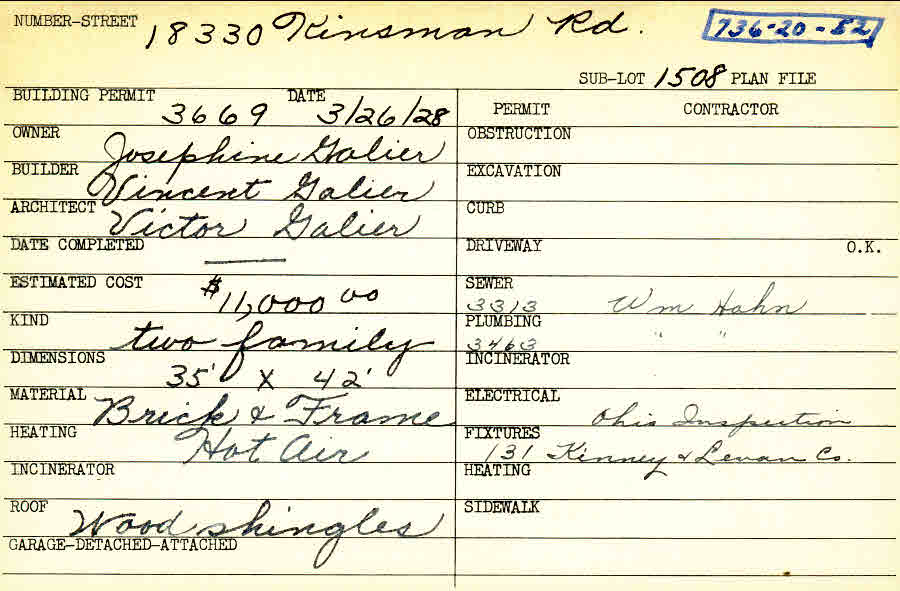 NUMBER-STREET 18330 Kinsman Rd. 736-20-52
SUB-LOT 1508 PLAN FILE
BUILDING PERMIT 3669 DATE 3/26/28
OWNER Josephine Galier
BUILDER Vincent Galier
ARCHITECT Victor Galier
DATE COMPLETED —
ESTIMATED COST $11,000 00
KIND two family
DIMENSIONS 35' X 42'
MATERIAL Brick & Frame
HEATING Hot Air
INCINERATOR
ROOF Wood shingles
GARAGE-DETACHED-ATTACHED
PERMIT CONTRACTOR
OBSTRUCTION
EXCAVATION
CURB
DRIVEWAY O.K.
SEWER
3313 Wm Hahn
PLUMBING
3463 " "
INCINERATOR
ELECTRICAL
Ohio Inspection
FIXTURES
131 Kinney & Levan Co.
HEATING
SIDEWALK